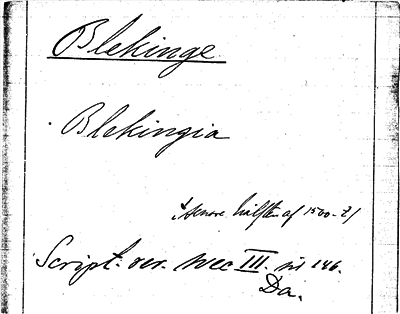 Blekinge
Blekingia
senare hälften af 1500-t/
Script. rer. svec III. sid 146.
Da.